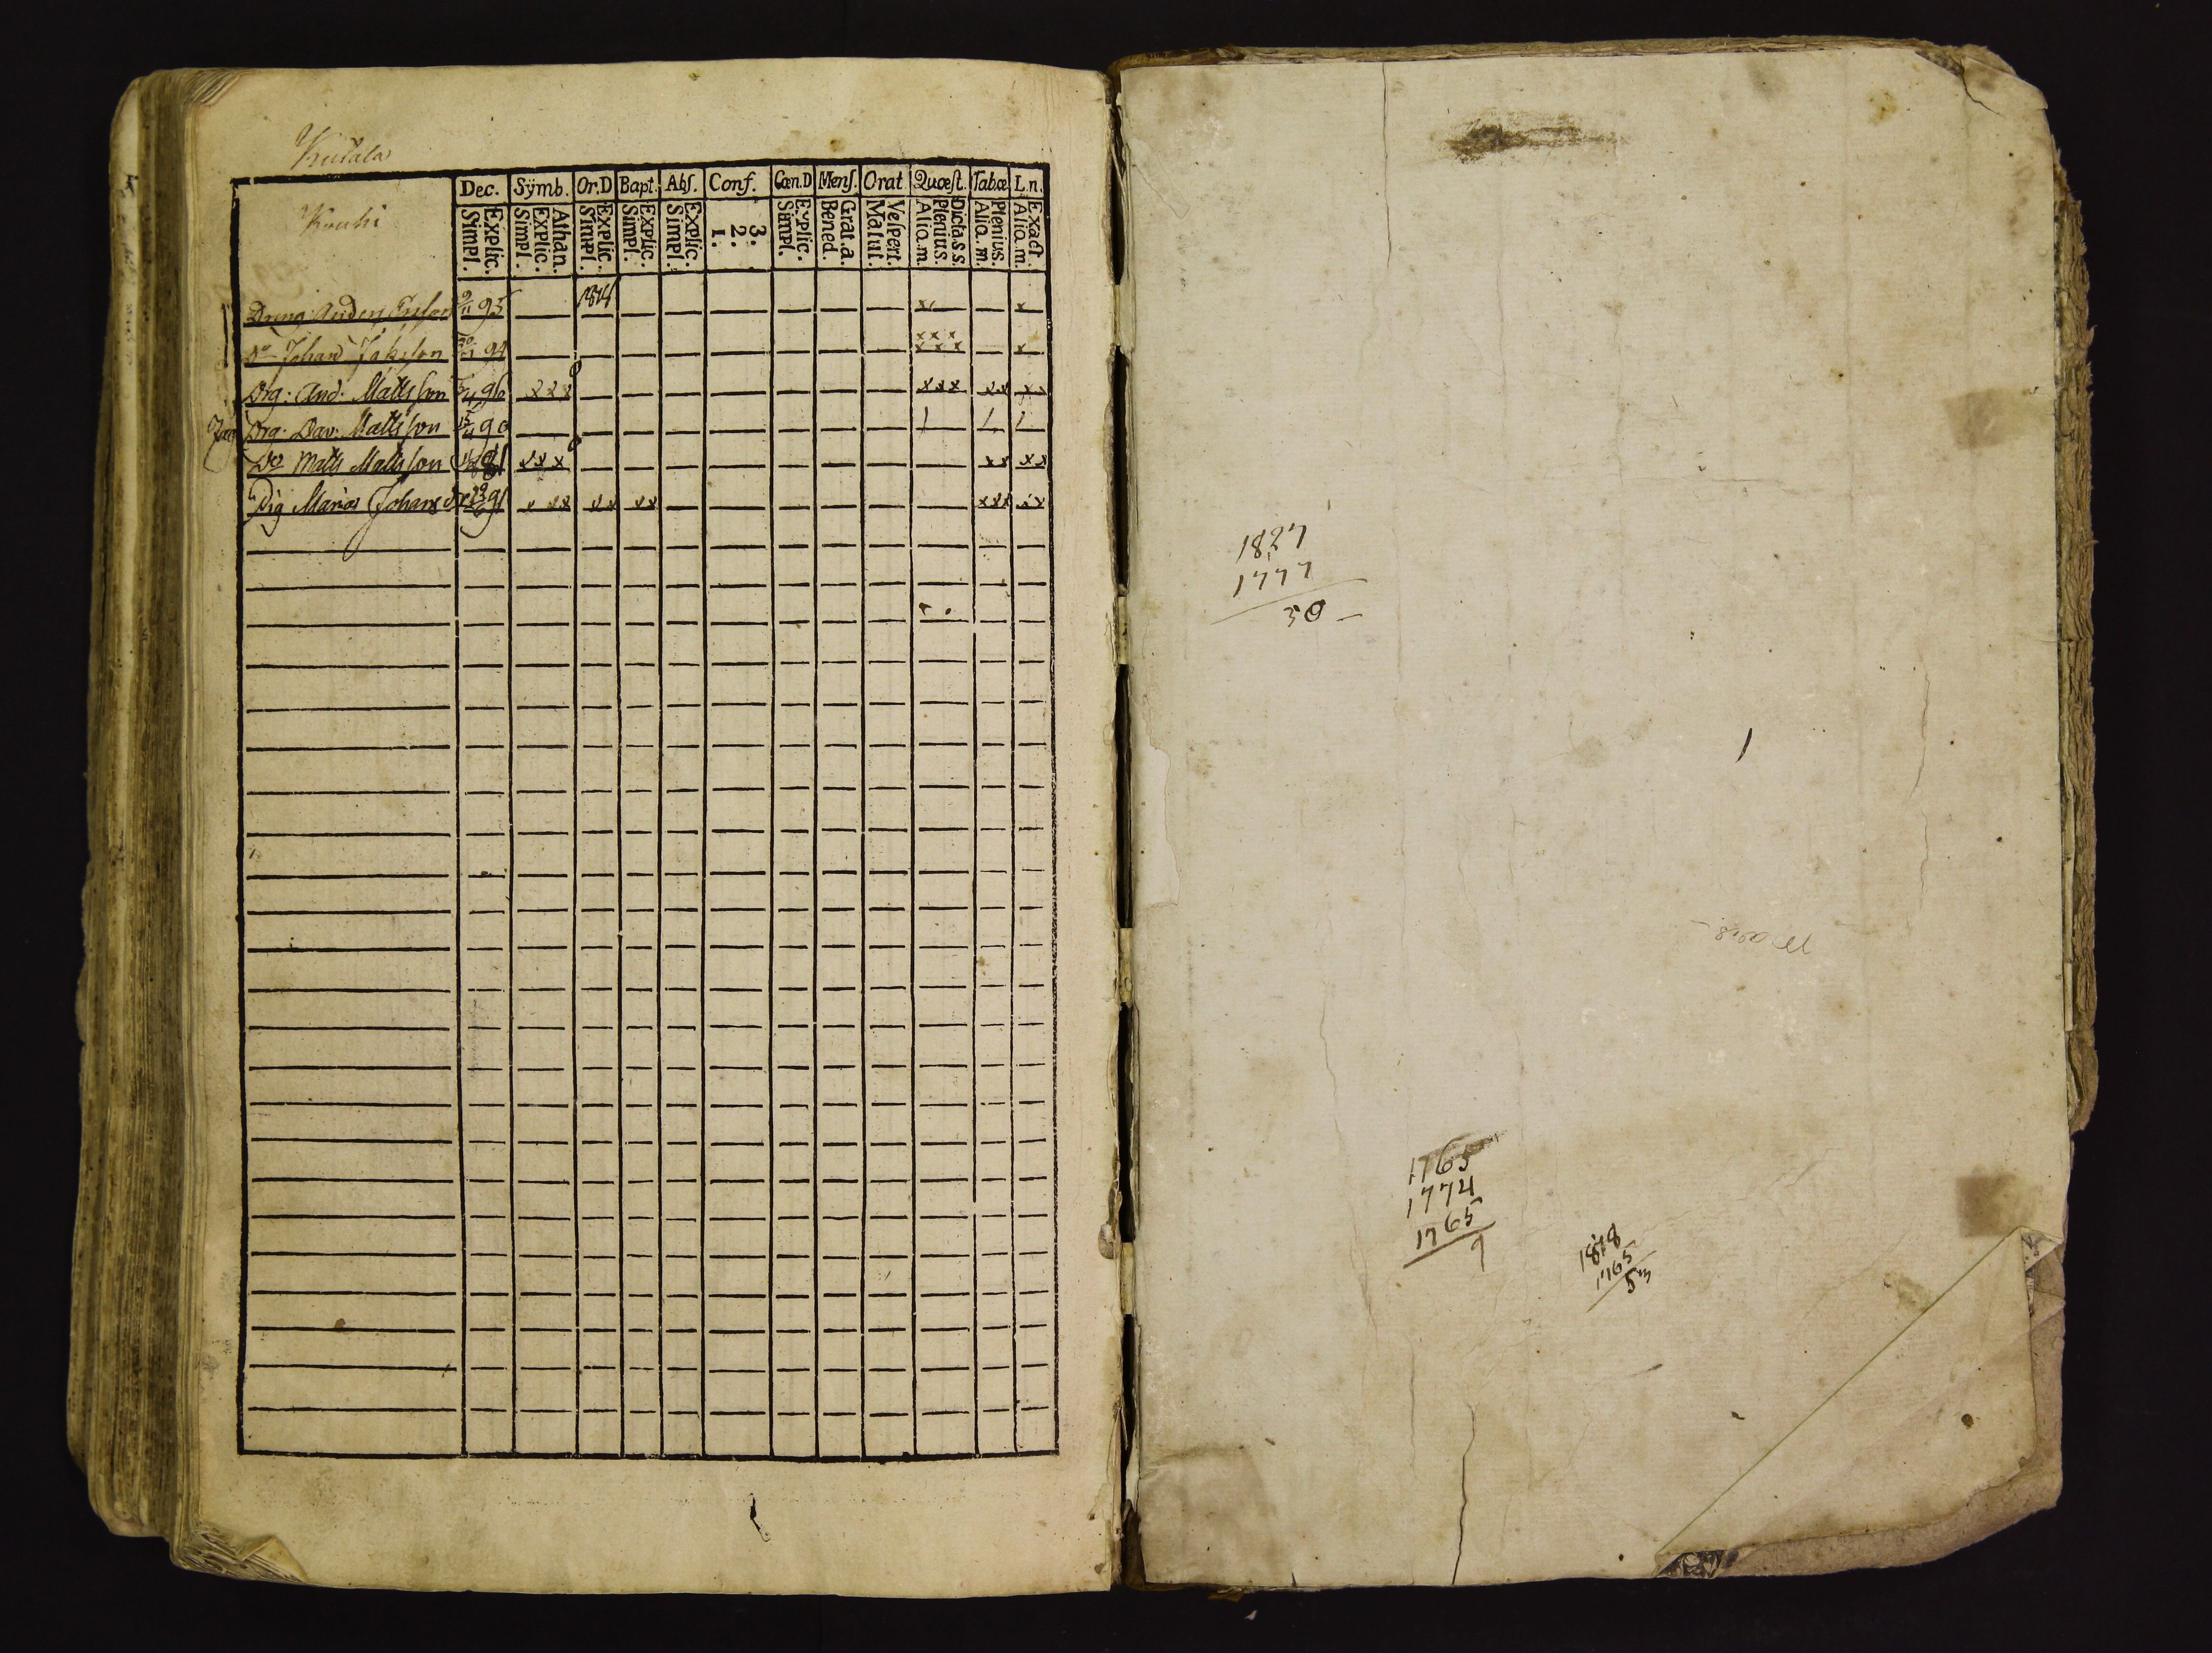 Kuðala
Dec. Sÿmb. Or.D Bapt. Abs. Conf. Cœn.D Mens. Orat Quæst. Tabæ L.n.
Kouhi
Explic. Simpl. Athan. Explic. Simpl. Explic. Simpl. Explic. Simpl. Explic. Simpl. 3. 2. 1. Explic. Simpl. Grat.a. Bened. Vespert. Matut. Dicta.s.s. Plenius. Aliq.m. Plenius. Aliq.m. Exact. Aliq.m.
Dreng Anders 95 1814 x
Do Johan Jakssson 94 x x x x x x x
Drg. And. Mattsson 96 x x x x x x x x x x
Drg. Dav. Mattsson 15/4 90 / / /
Do Matts Mattsson 91 x x x x x x x
Pig Maria Johansdr 91 x x x x x x x x x x x x
1827
1777
50
1765
1774
1765
9
1818
1765
53